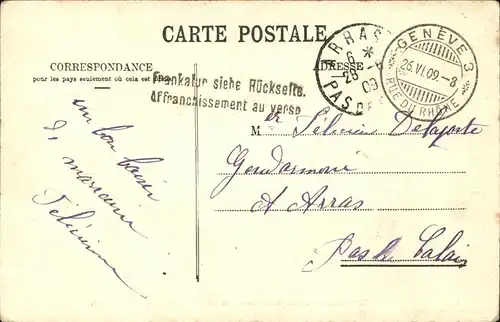 CARTE POSTALE
CORRESPONDANCE
pour les pays seulement où cela est
ADRESSE
Frankatur siehe Rückseite.
Affranchissement au verso
ARRAS
6 *
28 -6
09
PAS DE
GENÈVE 3
26.VI.09.-8
RUE DU RHÔNE
un bon baiser
Félicien
M er Félicien Delaporte
Gendarmerie
A Arras
Pas de Calais